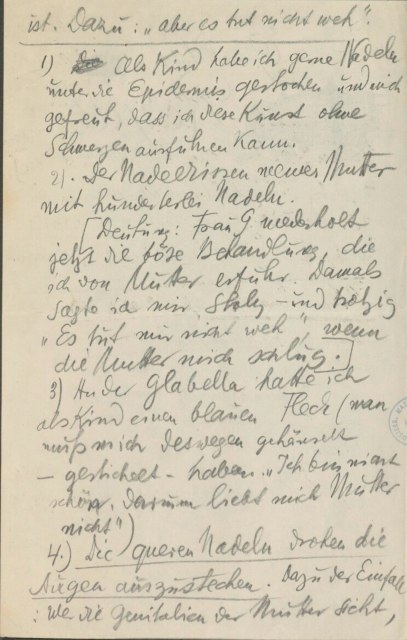 ist. Dazu: „aber es tut nicht weh".
1) Als Kind habe ich gerne Nadeln
unter die Epidermis gestochen und mich
gefreut, dass ich diese Kunst ohne
Schmerzen ausführen kann.
2). Der Nadelkissen meiner Mutter
mit hunderterlei Nadeln.
[Deutung: Frau G. wiederholt
jetzt die böse Behandlung, die
ich von Mutter erfuhr. Damals
sagte ich mir, stolz – und trotzig
„Es tut mir nicht weh", wenn
die Mutter mich schlug.]
3) An der Glabella hatte ich
als Kind einen blauen Fleck (man
muß mich deswegen gehänselt
– gestichelt – haben. „Ich bin nicht
schön, darum liebt mich Mutter
nicht")
4.) Die queren Nadeln drohen die
Augen auszustechen. Dazu der Einfall
: Wer die Genitalien der Mutter sieht,